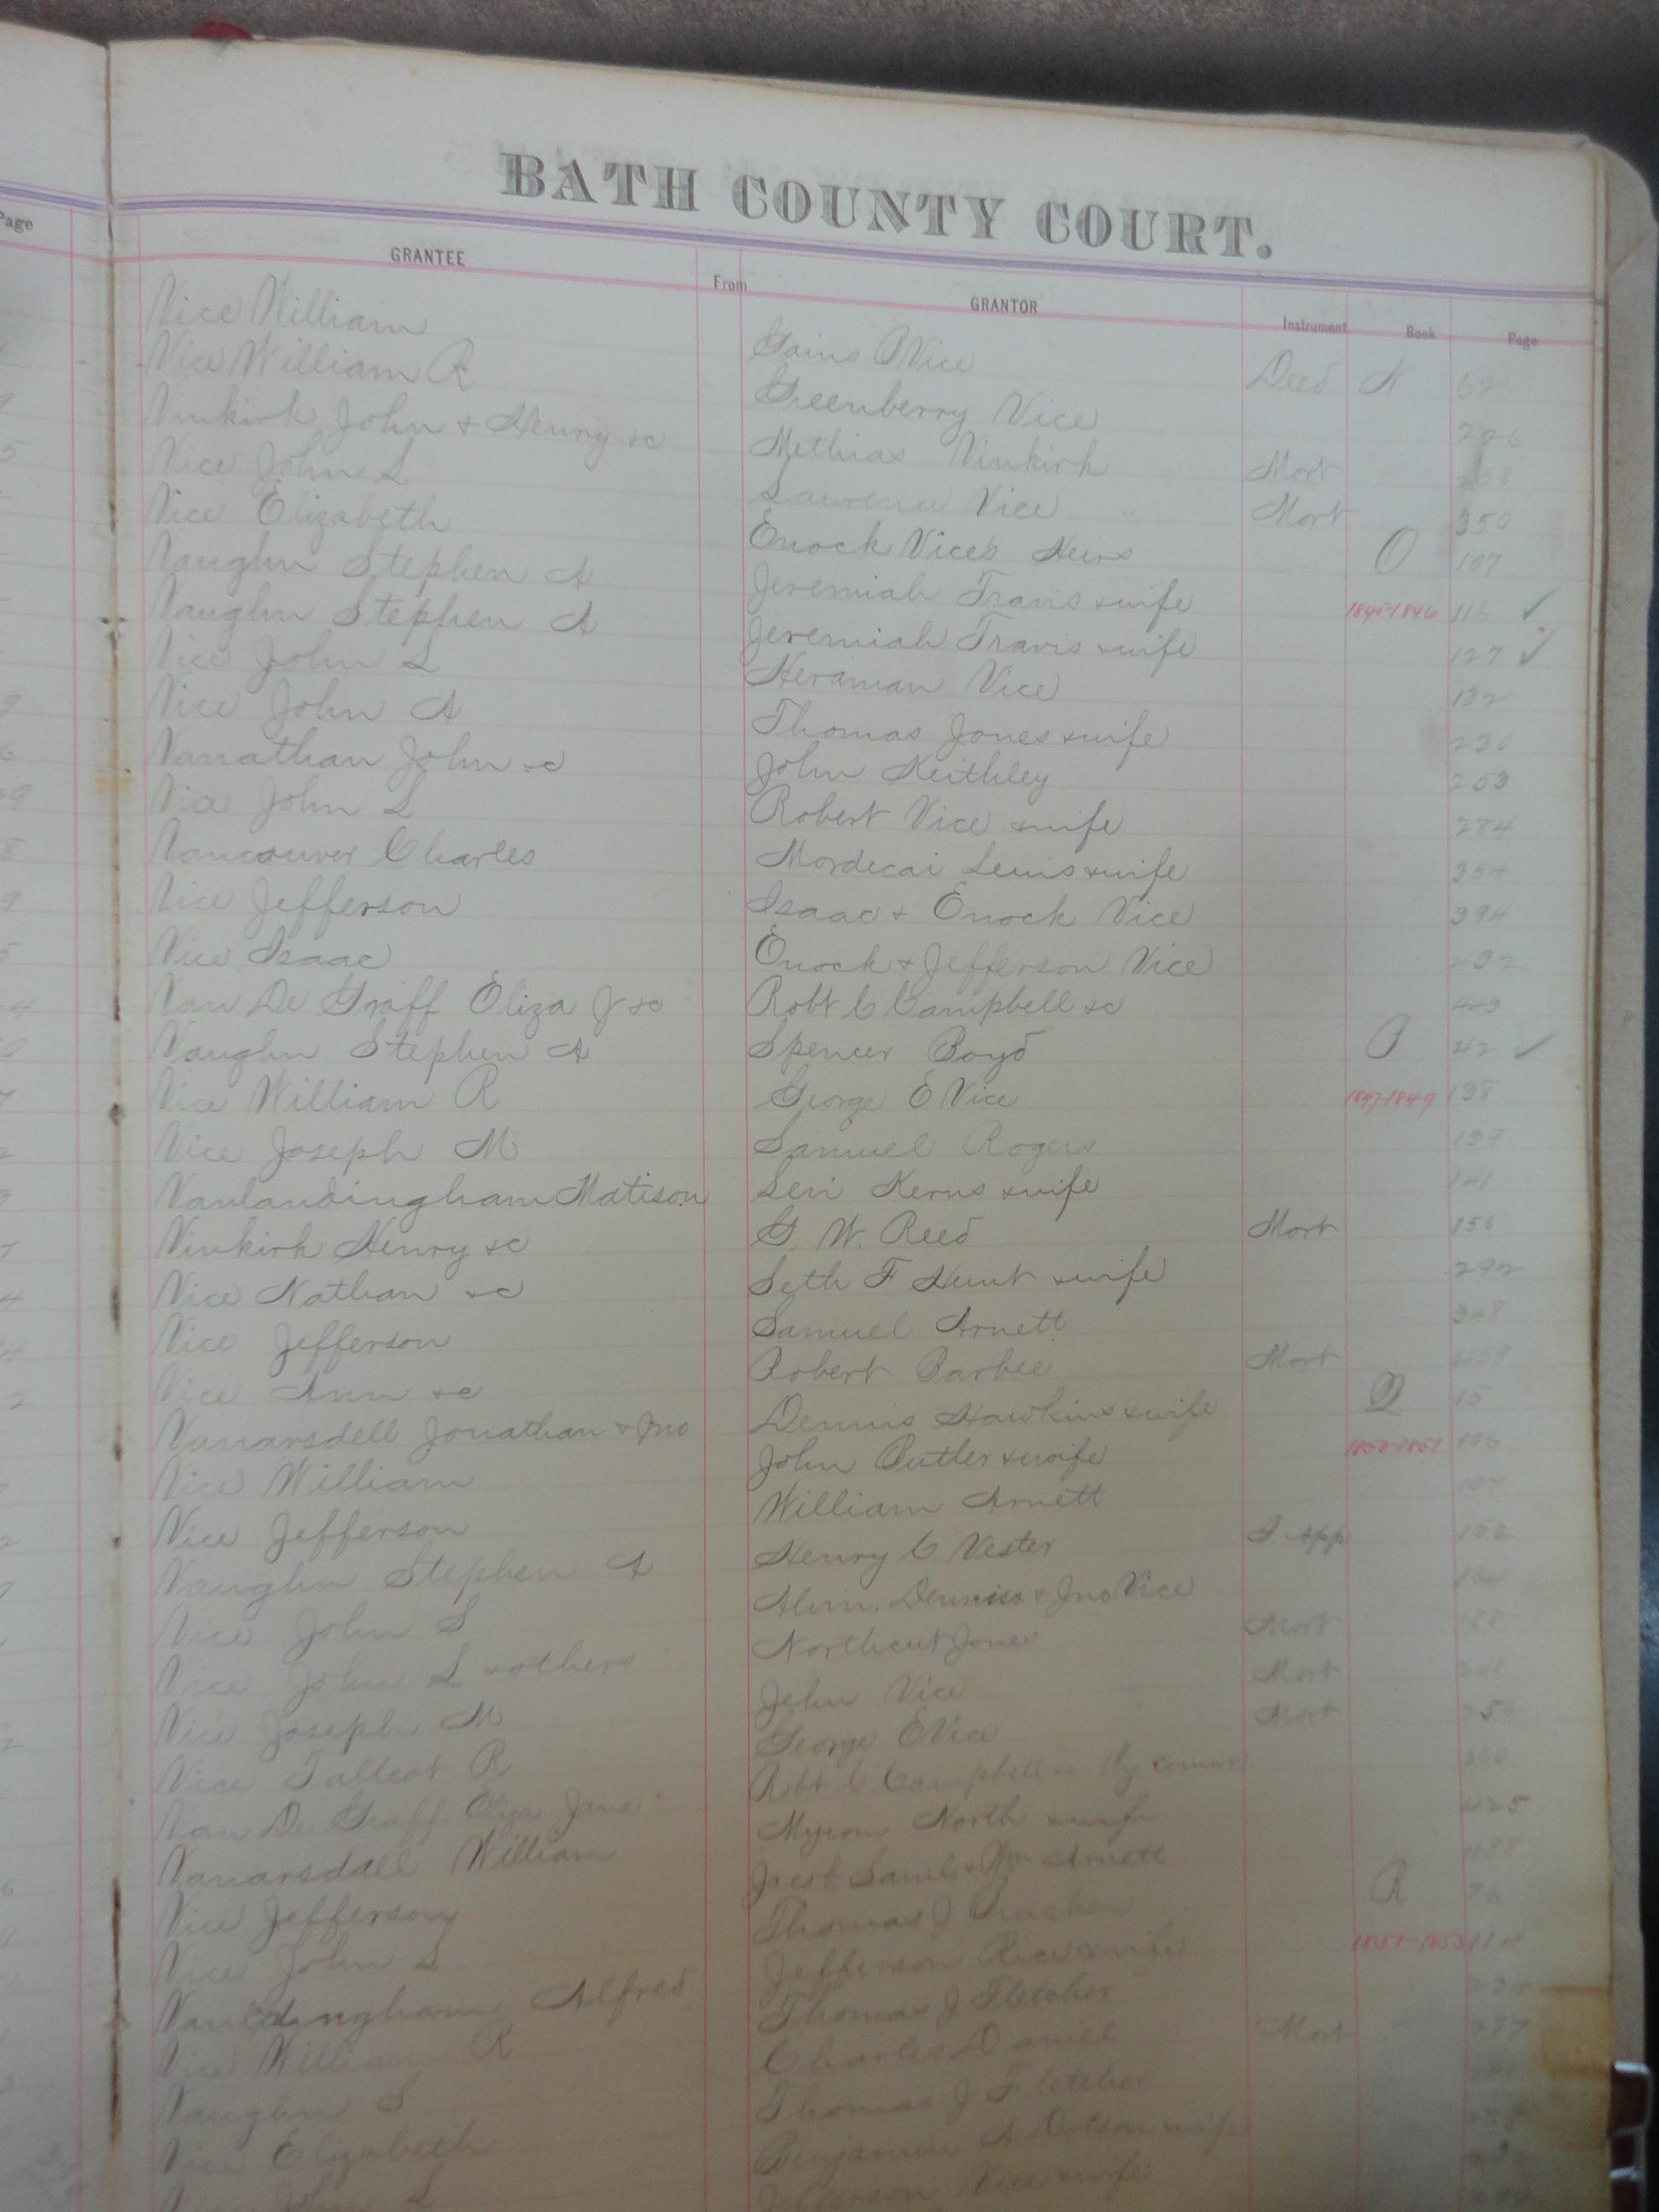 BATH COUNTY COURT.
Page
GRANTEE From GRANTOR Instrument Book Page
Vice William Gains P Vice Deed N 62
Vice William R Greenberry Vice 226
Vinkirk John & Henry &c Methias Vinkirk Mort 258
Vice John L Lawrence Vice Mort 350
Vice Elizabeth Enock Vice's Heirs O 107
Vaughn Stephen A Jeremiah Travis & wife 1845-1846 116 ✓
Vaughn Stephen A Jeremiah Travis & wife 127 ✓
Vice John L Heraman Vice 132
Vice John A Thomas Jones & wife 230
Vanathan John &c John Keithley 253
Vice John L Robert Vice & wife 284
Vancouver Charles Mordecai Lewis & wife 354
Vice Jefferson Isaac & Enock Vice 394
Vice Isaac Enock & Jefferson Vice 432
Van De Graff Eliza J &c Robt C Campbell &c
Vaughn Stephen A Spencer Boyd P 42 ✓
Vice William R George E Vice 1847-1849 138
Vice Joseph M Samuel Rogers 139
Vanlandingham Matison Levi Kerns & wife 141
Vinkirk Henry &c G. W. Reed Mort 156
Vice Nathan &c Seth F Hunt & wife 292
Vice Jefferson Samuel Arnett 328
Vice Ann &c Robert Barbee Mort
Vanarsdell Jonathan & Jno Dennis Hawkins & wife Q 15
Vice William John Butler & wife 1850-1851 106
Vice Jefferson William Arnett 107
Vaughn Stephen A Henry C Vester 152
Vice John S Dennis & Jno Vice
Vice John L & others Northcut Jones Mort 188
Vice Joseph M John Vice Mort
Vice Tallcot R George E Vice Mort 256
Van De Graff Eliza Jane Robt C Campbell &c By
Vanarsdall William Myrom North & wife 425
Vice Jefferson Jacob Saml & Wm Arnett 488
Vice John L Thomas J Bracken R 76
Vanlandingham Alfred Jefferson Rice & wife 1851-1853 114
Vice William R Thomas J Fletcher
Vaughn S Charles Daniel Mort
Vice Elizabeth Thomas J Fletcher
Vice John L Benjamin A Dotson & wife
Jefferson Vice & wife